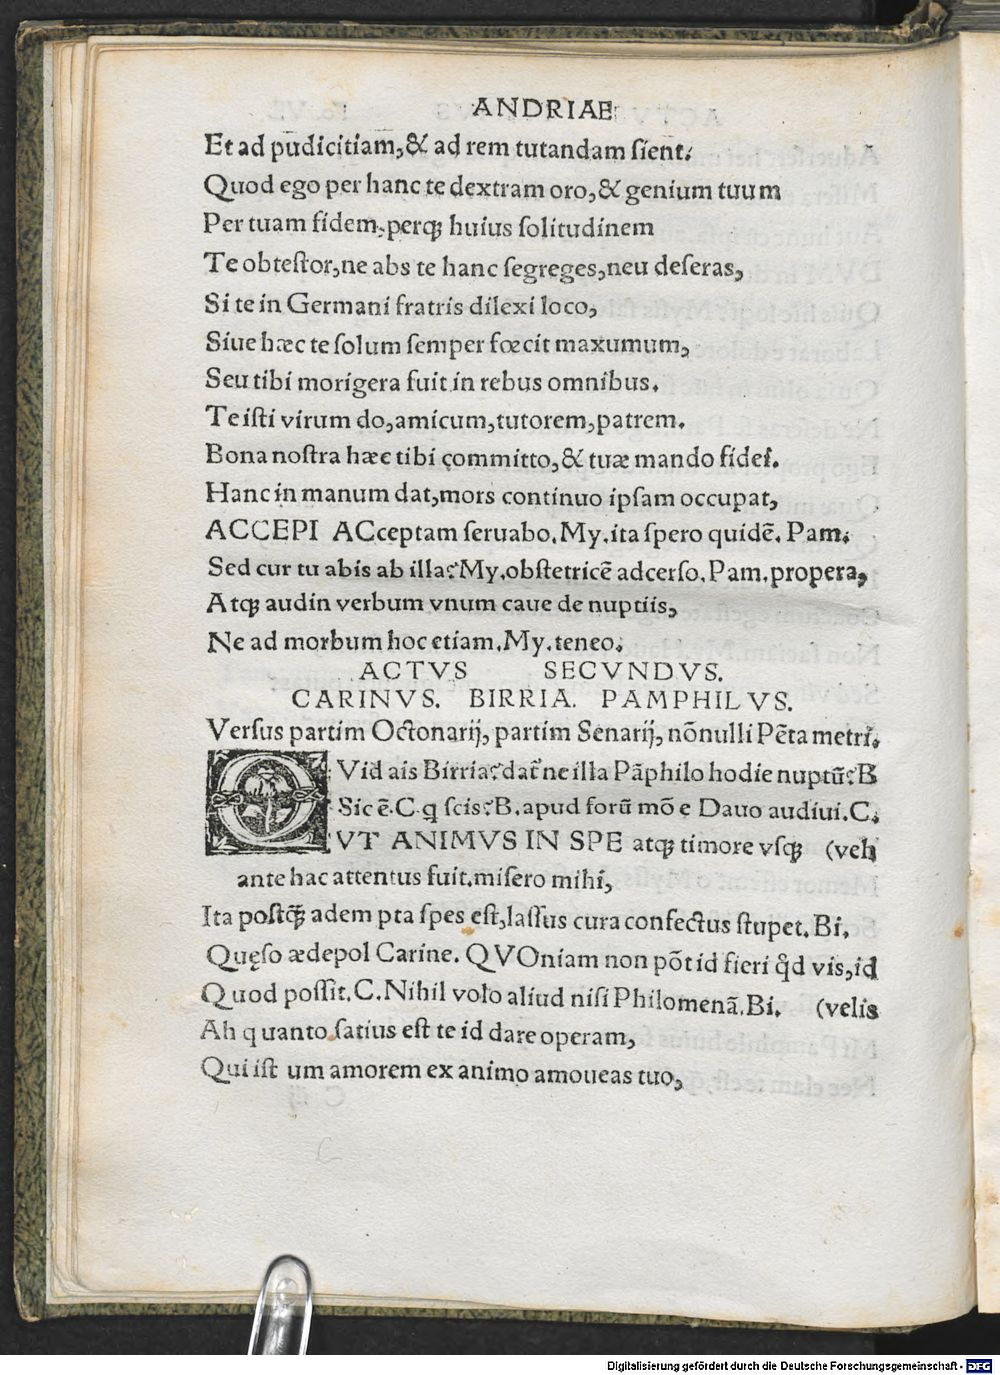 ANDRIAE
Et ad pūdicitiam,& ad rem tutandam ſient.
Quod ego per hanc te dextram oro,& genium tuum
Per tuam fidem,perꝗ huius ſolitudinem
Te obteſtor,ne abs te hanc ſegreges,neu deſeras,
Si te in Germani fratris dilexi loco,
Siue hæc te ſolum ſemper fœcit maxumum,
Seu tibi morigera fuit in rebus omnibus.
Te iſti virum do,amicum,tutorem,patrem.
Bona noſtra hæc tibi committo,& tuæ mando fideſ.
Hanc in manum dat,mors continuo ipſam occupat,
ACCEPI ACceptam ſeruabo.My.ita ſpero quidē. Pam.
Sed cur tu abis ab illa?My.obſtetricē adcerſo.Pam.propera,
Atꝗ audin verbum vnum caue de nuptiis,
Ne ad morbum hoc etiam.My.teneo.
ACTVS SECVNDVS.
CARINVS. BIRRIA. PAMPHILVS.
Verſus partim Octonarij, partim Senarij, nōnulli Pēta metri.
QVid ais Birria?dat᷑ ne illa Pāphilo hodie nuptū?B
Sic ē.C.q ſcis?B.apud forū mō e Dauo audiui.C.
VT ANIMVS IN SPE atꝗ timore vſꝗ (veh
ante hac attentus fuit.miſero mihi,
Ita poſtꝗ̄ adem pta ſpes eſt,laſſus cura confectus ſtupet. Bi.
Quęſo ædepol Carine. QVOniam non pōt id fieri qd vis,id
Quod poſſit.C.Nihil volo aliud niſi Philomenā.Bi. (velis
Ah quanto ſatius eſt te id dare operam,
Qui iſt um amorem ex animo amoueas tuo,
Digitalisierung gefördert durch die Deutsche Forschungsgemeinschaft - DFG